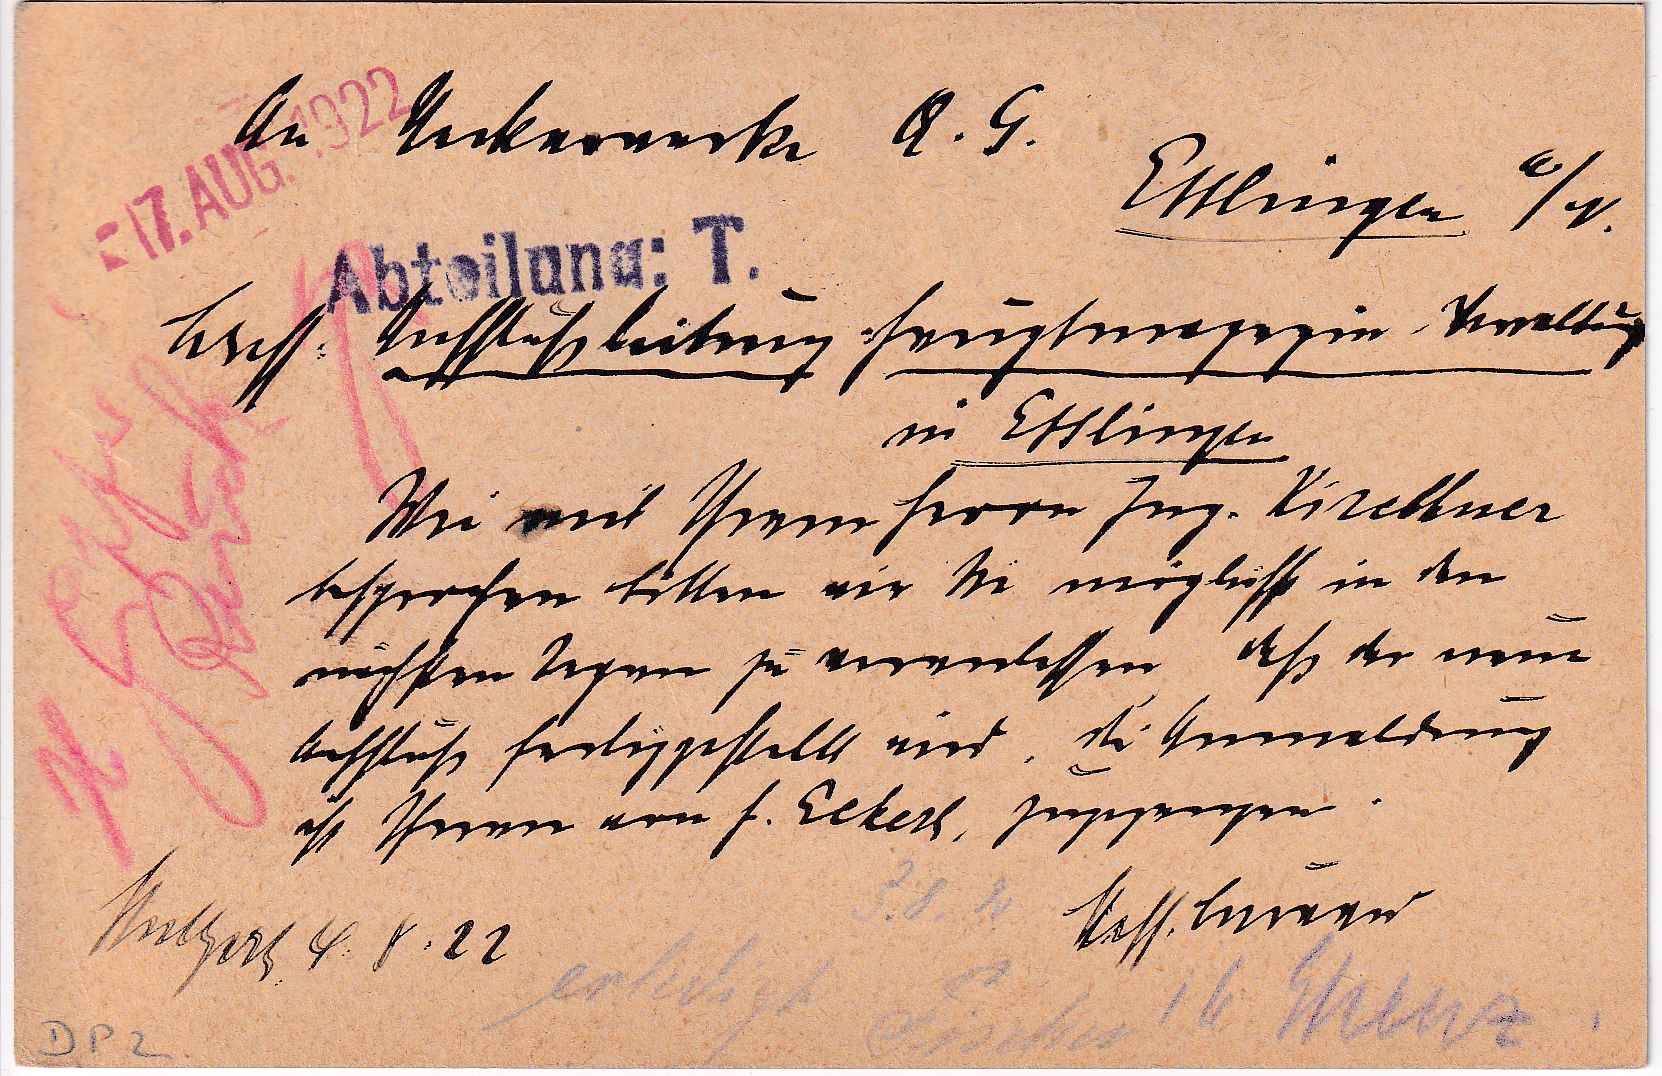 17. AUG. 1922
An Neckarwerke A. G.
Esslingen a/N.
Abteilung: T.
betreff. Anschlußleitung Hauptmagazin-Verwaltung
in Esslingen
Wie mit Ihrem Herrn Ing. Kirchner
besprochen bitten wir Sie möglichst in den
nächsten Tagen zu veranlassen daß der neue
Anschluß fertiggestellt wird, die Anmeldung
ist Ihnen von H. Eckert, zugegangen.
Stuttgart 4. 8. 22
erledigt
DP2